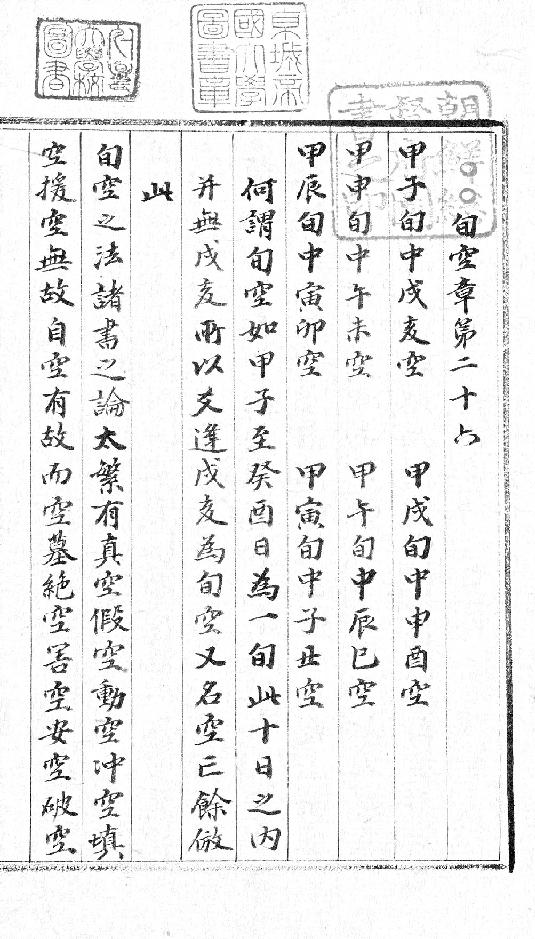 旬空章第二十六
甲子旬中戌亥空　甲戌旬中申酉空
甲申旬中午未空　甲午旬中辰巳空
甲辰旬中寅卯空　甲寅旬中子丑空
何謂旬空如甲子至癸酉日為一旬此十日之内
并無戌亥所以爻逢戌亥為旬空又名空亡餘倣
此
旬空之法諸書之論太繁有真空假空動空冲空填
空援空無故自空有故而空墓絶空害空安空破空
東城帝
國大學
圖書章
圖書